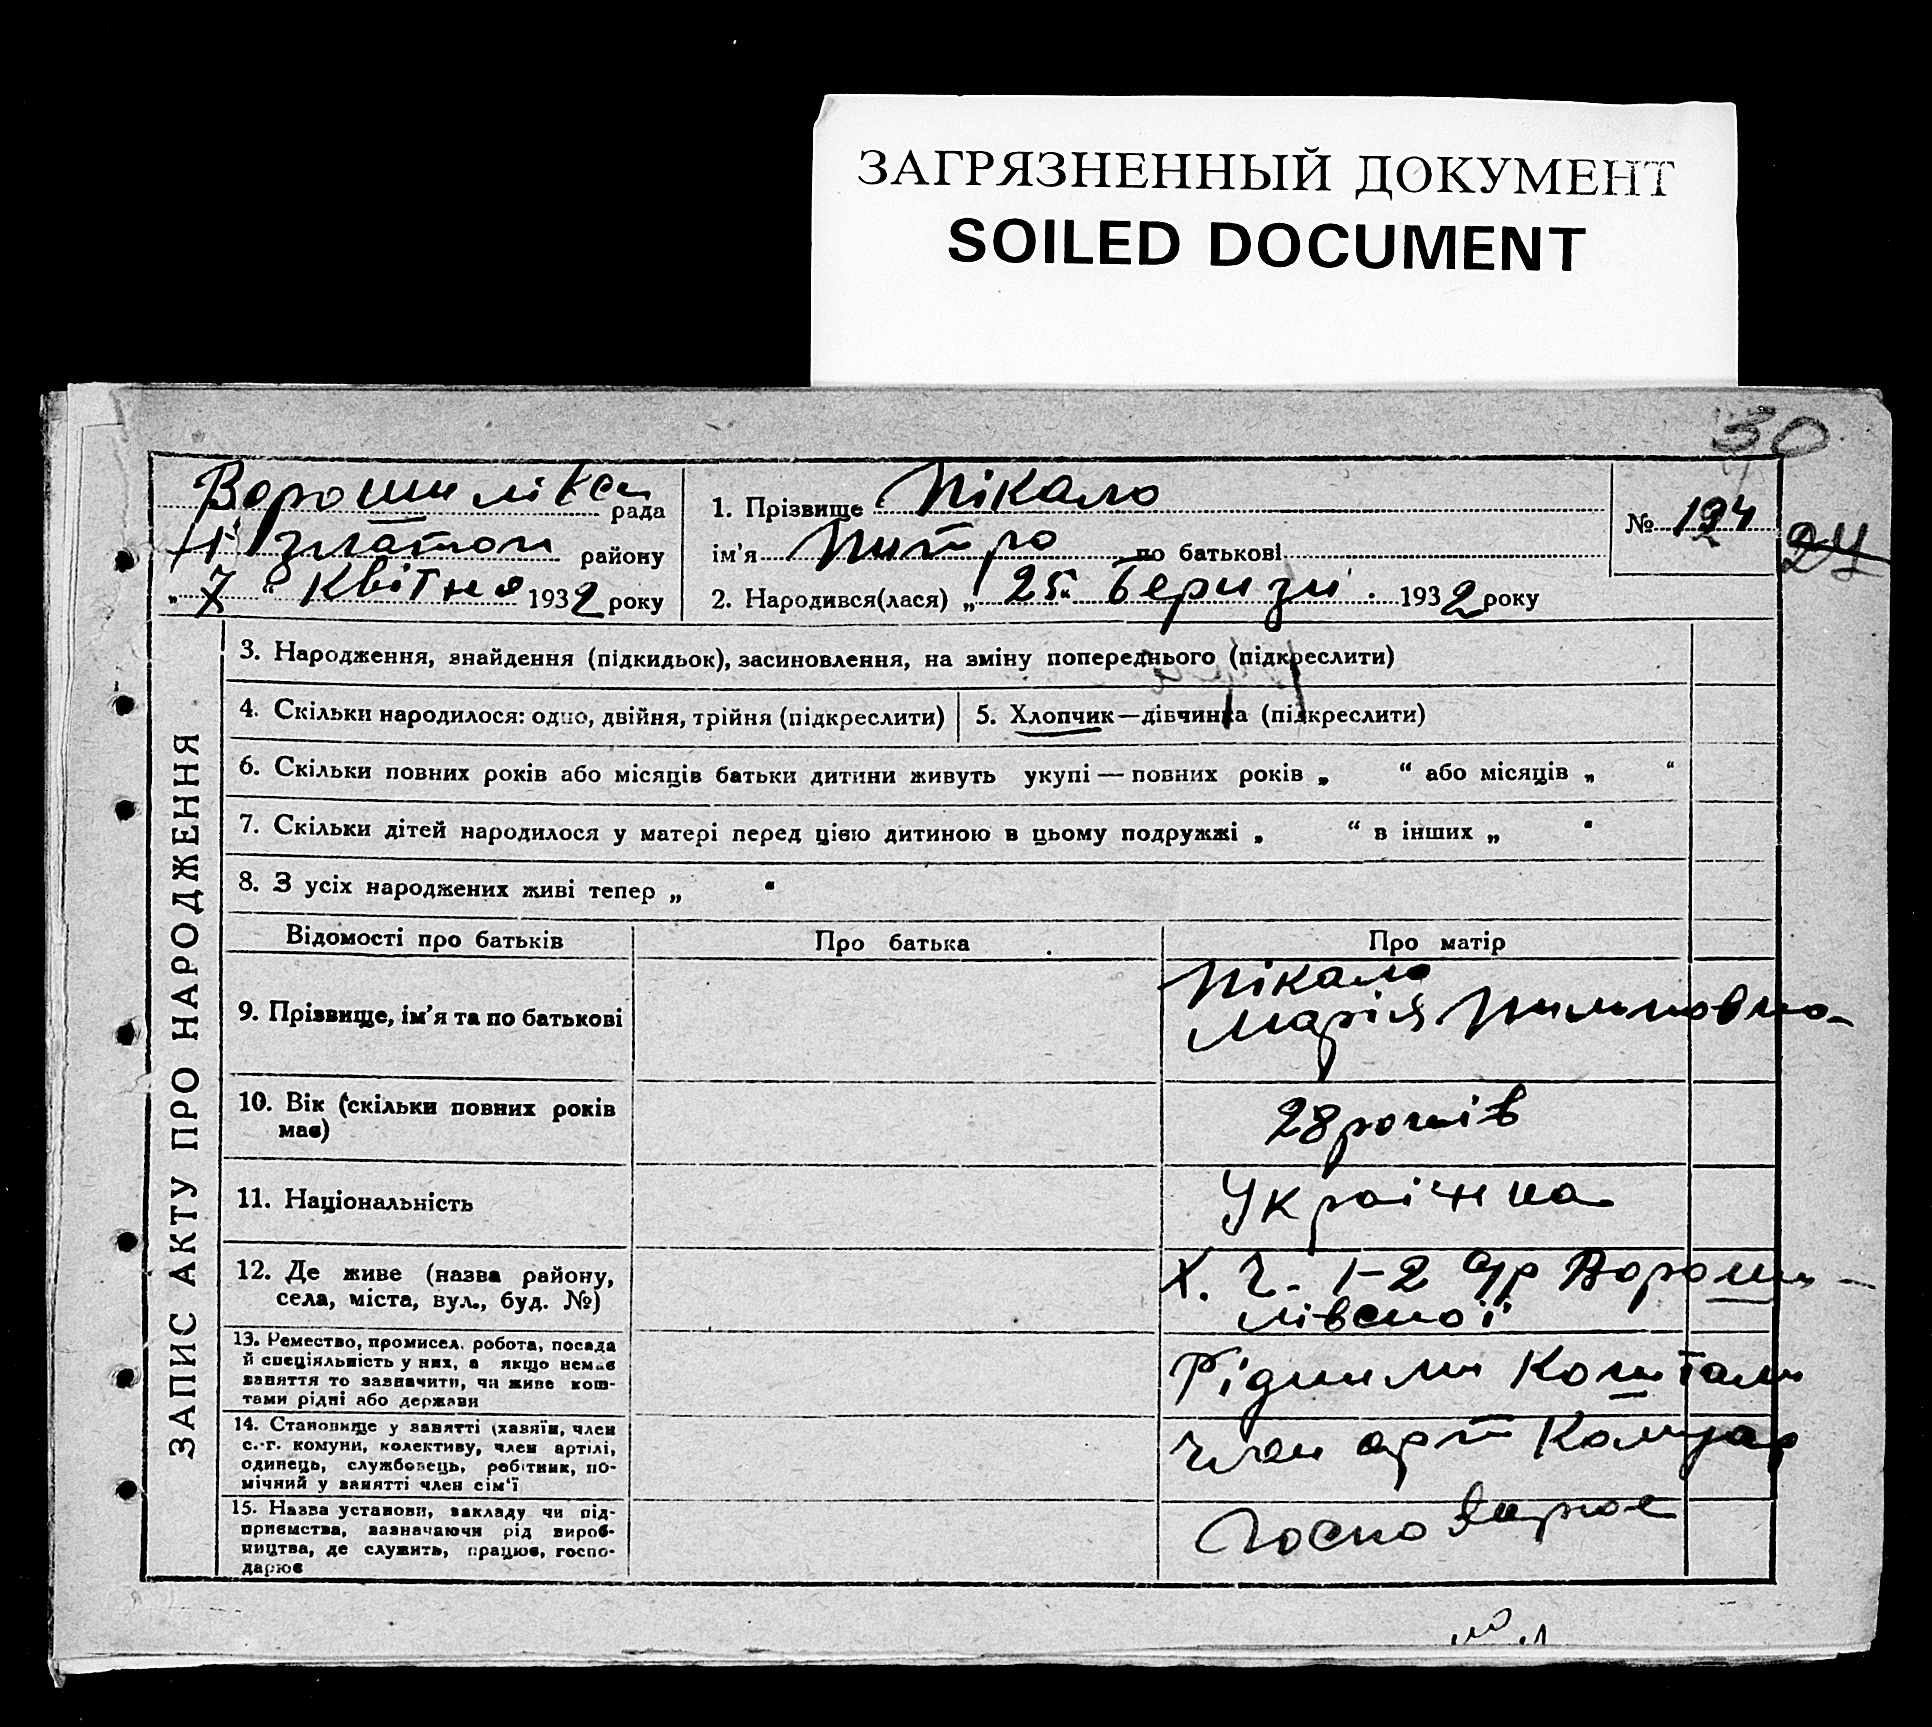 ЗАГРЯЗНЕННЫЙ ДОКУМЕНТ
SOILED DOCUMENT
30
рада
району
„ 7 “ Квітня 1932 року
1. Прізвище Пікало
ім'я по батькові
2. Народився(лася) „ 25 “ Березн 1932 року
№ 124
24
ЗАПИС АКТУ ПРО НАРОДЖЕННЯ
3. Народження, знайдення (підкидьок), засиновлення, на зміну попереднього (підкреслити)
4. Скільки народилося: одно, двійня, трійня (підкреслити)
5. Хлопчик—дівчинка (підкреслити)
6. Скільки повних років або місяців батьки дитини живуть укупі — повних років „ “ або місяців „ “
7. Скільки дітей народилося у матері перед цією дитиною в цьому подружжі „ “ в інших „ “
8. З усіх народжених живі тепер „ “
Відомості про батьків
Про батька
Про матір
9. Прізвище, ім'я та по батькові
Пікало
Марія
10. Вік (скільки повних років
має)
28 років
11. Національність
Українка
12. Де живе (назва району,
села, міста, вул., буд. №)
Х. Ч. 1-2 с/р Вороши-
лівської
13. Ремество, промисел, робота, посада
й спеціяльність у них, а якщо немає
заняття то зазначити, чи живе кош-
тами рідні або держави
Рідними Коштами
14. Становище у занятті (хазяїн, член
с.-г. комуни, колективу, член артілі,
одинець, службовець, робітник, по-
мічний у занятті член сім'ї
член арт
15. Назва установи, закладу чи під-
приємства, зазначаючи рід вироб-
ництва, де служить, працює, госпо-
дарює
Господарює